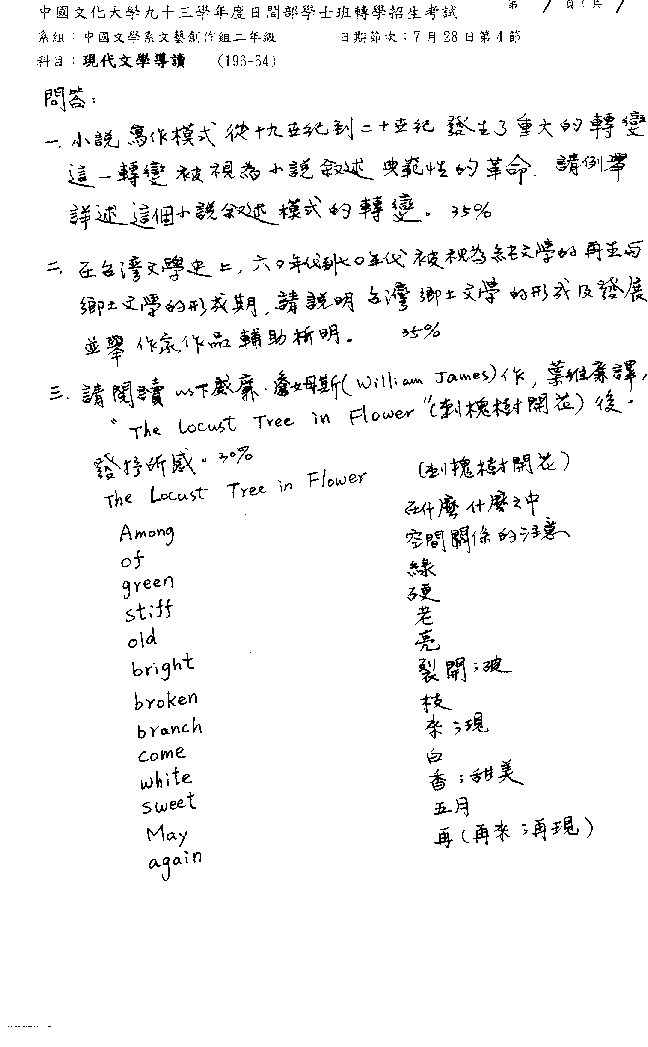 中國文化大學九十三學年度日間部學士班轉學招生考試 第 頁(共
系組：中國文學系文藝創作組二年級 日期節次：7月28日第4節
科目：現代文學導讀 (193-64)
問答：
一. 小說寫作模式從十九世紀到二十世紀發生了重大的轉變
這一轉變被視為小說敘述典範性的革命. 請例舉
詳述這個小說敘述模式的轉變。35%
二. 在台灣文學史上，六〇年代到七〇年代被視為文學的再生與
鄉土文學的形成期，請說明台灣鄉土文學的形成及發展
並舉作家作品輔助析明。 35%
三. 請閱讀以下威廉·詹姆斯(William James)作，葉維廉譯，
"The Locust Tree in Flower"(刺槐樹開花)後，
發抒所感。30%
The Locust Tree in Flower (刺槐樹開花)
Among 在什麼什麼之中
of 空間關係的注意
green 綠
stiff 硬
old 老
bright 亮
broken 裂開；破
branch 枝
come 來；現
white 白
sweet 香；甜美
May 五月
again 再(再來；再現)